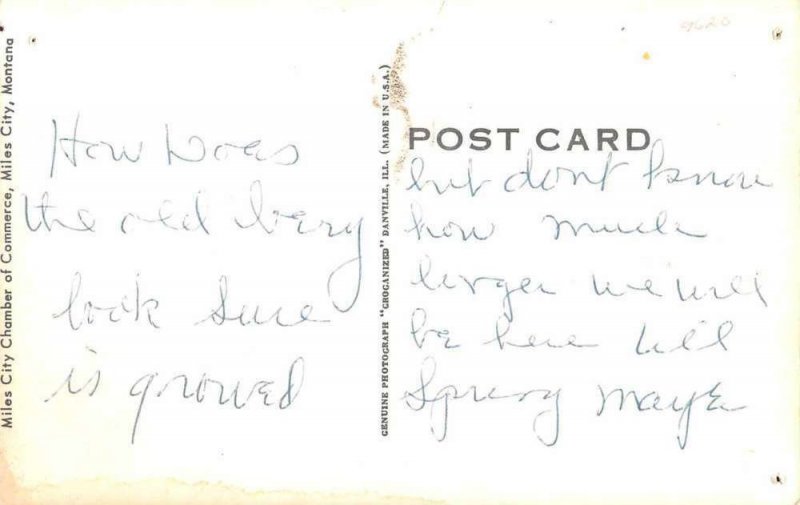 Miles City Chamber of Commerce, Miles City, Montana
How Does
the old
look sure
is growed
GENUINE PHOTOGRAPH "GROGANIZED" DANVILLE, ILL. (MADE IN U.S.A.)
9620
POST CARD
but dont know
how much
longer we will
be here till
Spring maybe